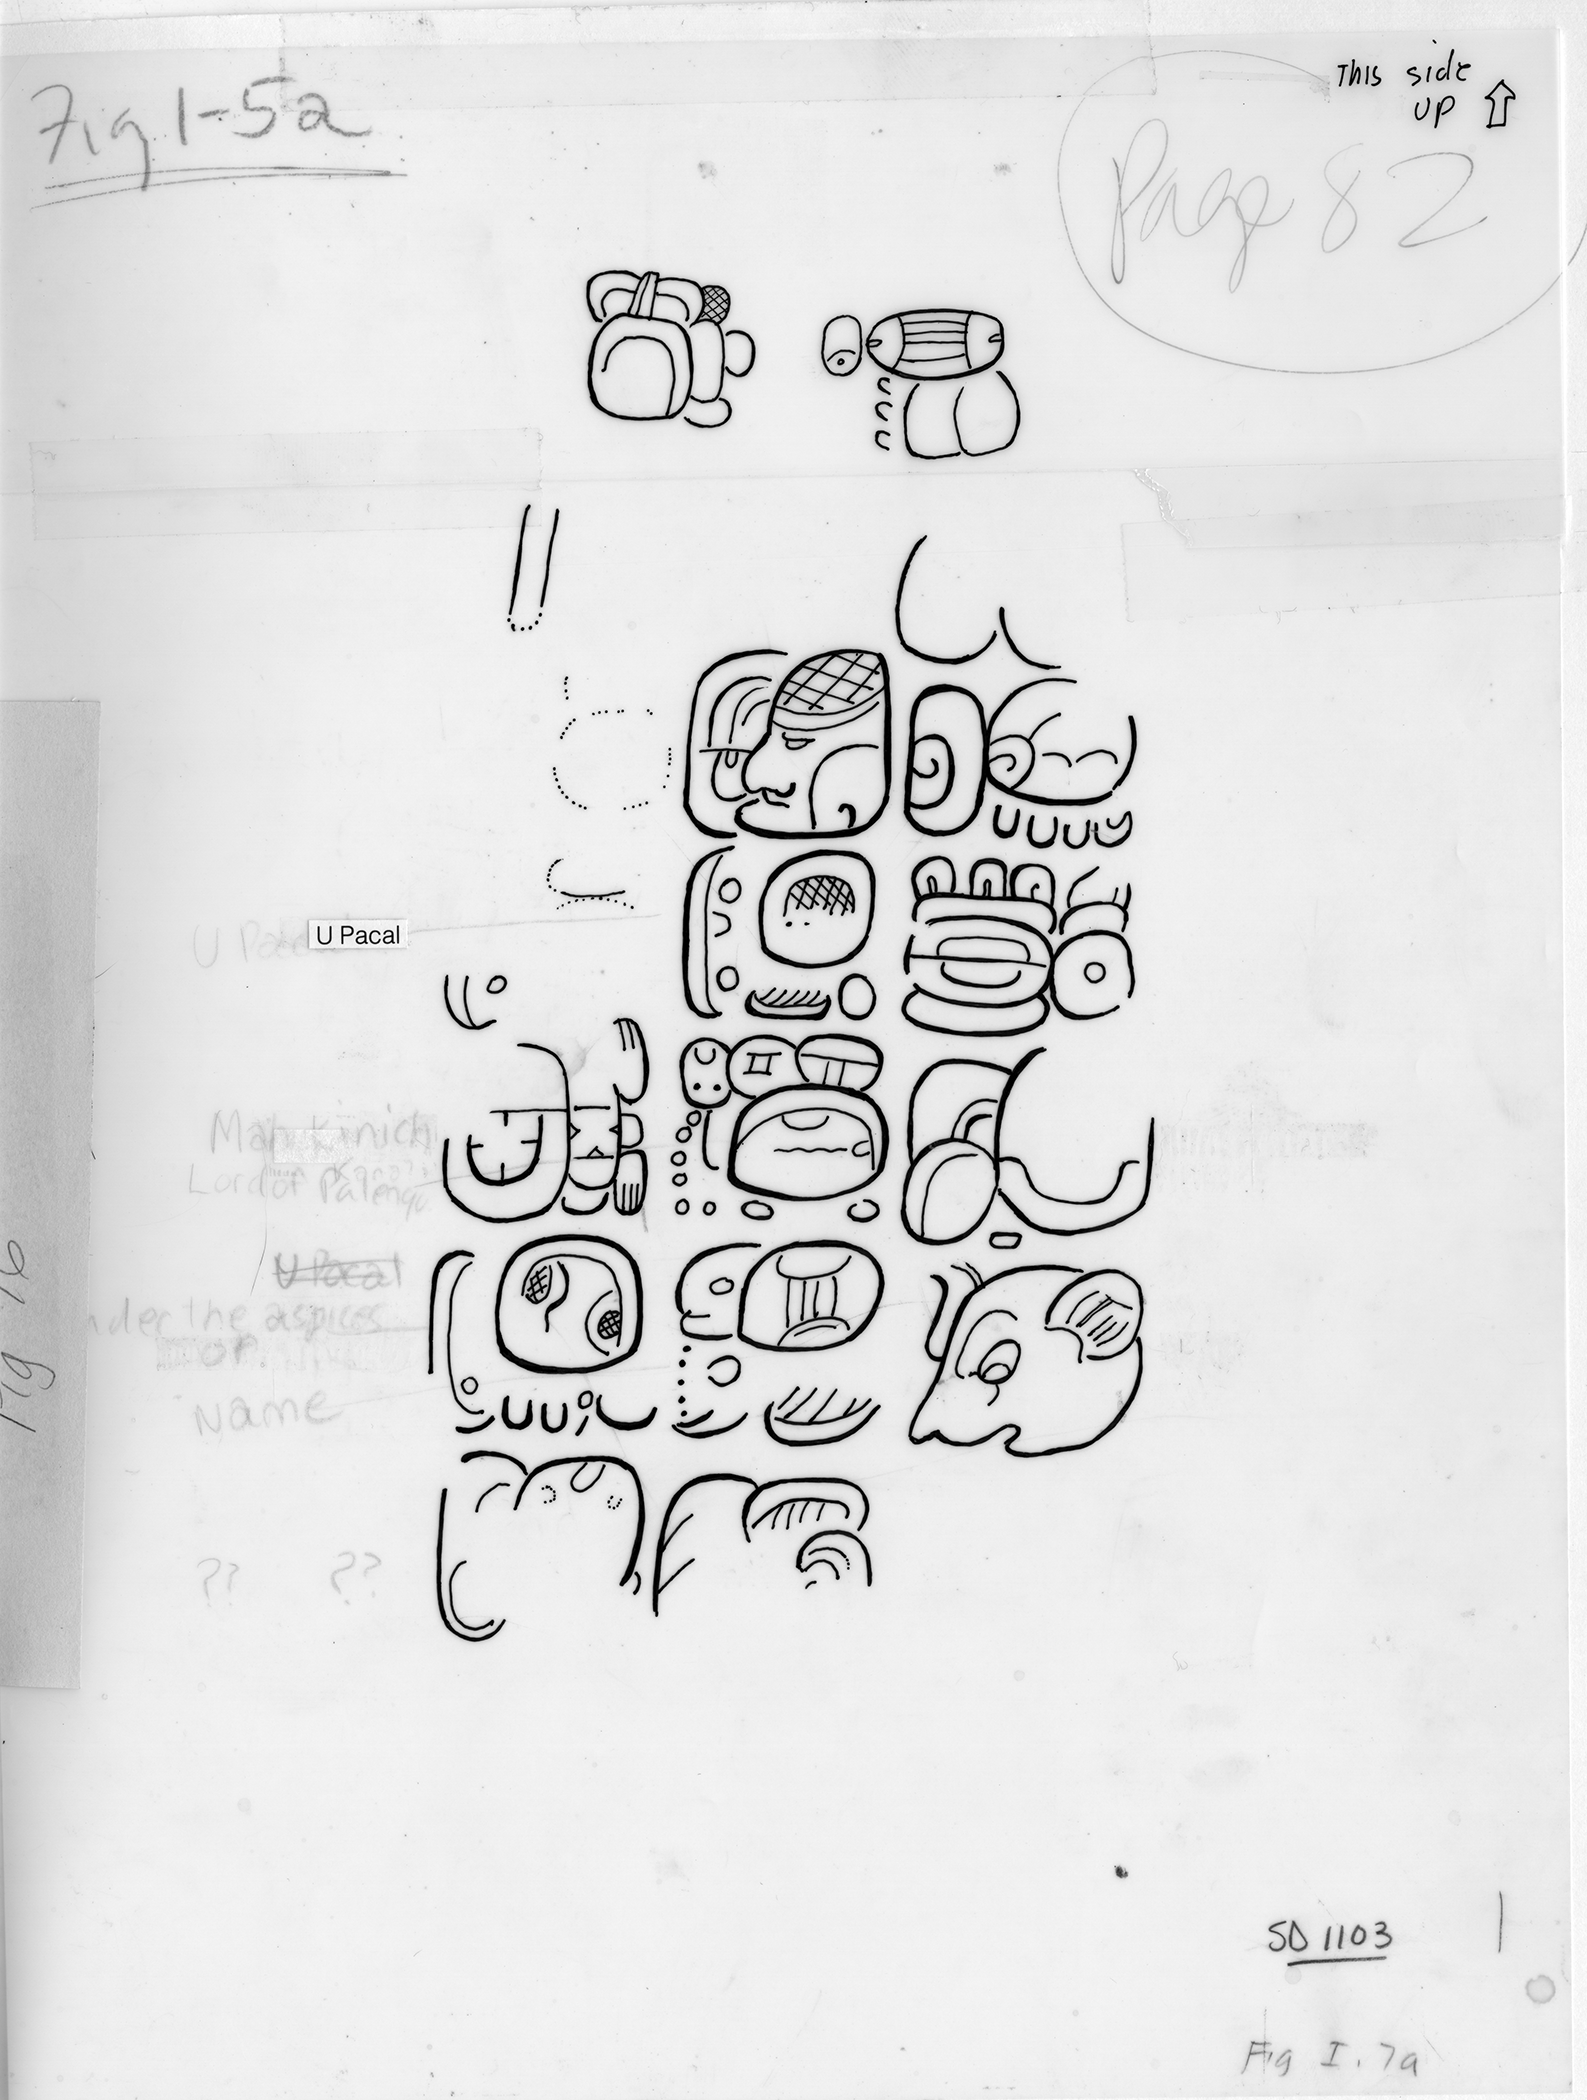 This side
UP
Fig 1-5a
Page 82
U Pacal
U Pacal
Mah Kinich
Lord of Palenq
U Pacal
nder the aspices
OF
Name
?? ??
Fig 16
SD 1103
Fig I.7a